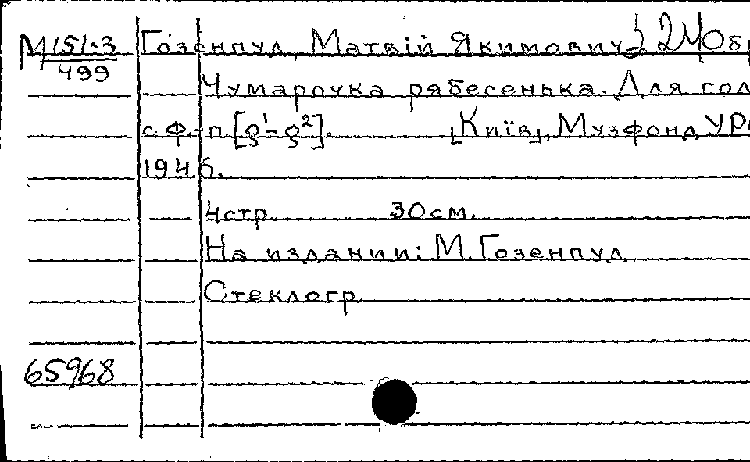 М 151-3 Гозенпуд, Матвій Якимович
499
Чумарочка рябесенька. Для гол
с ф-п [g¹-g²]. [Київ], Музфонд УР
1946.
4стр. 30см.
На издании: М. Гозенпуд
Стеклогр.
65968